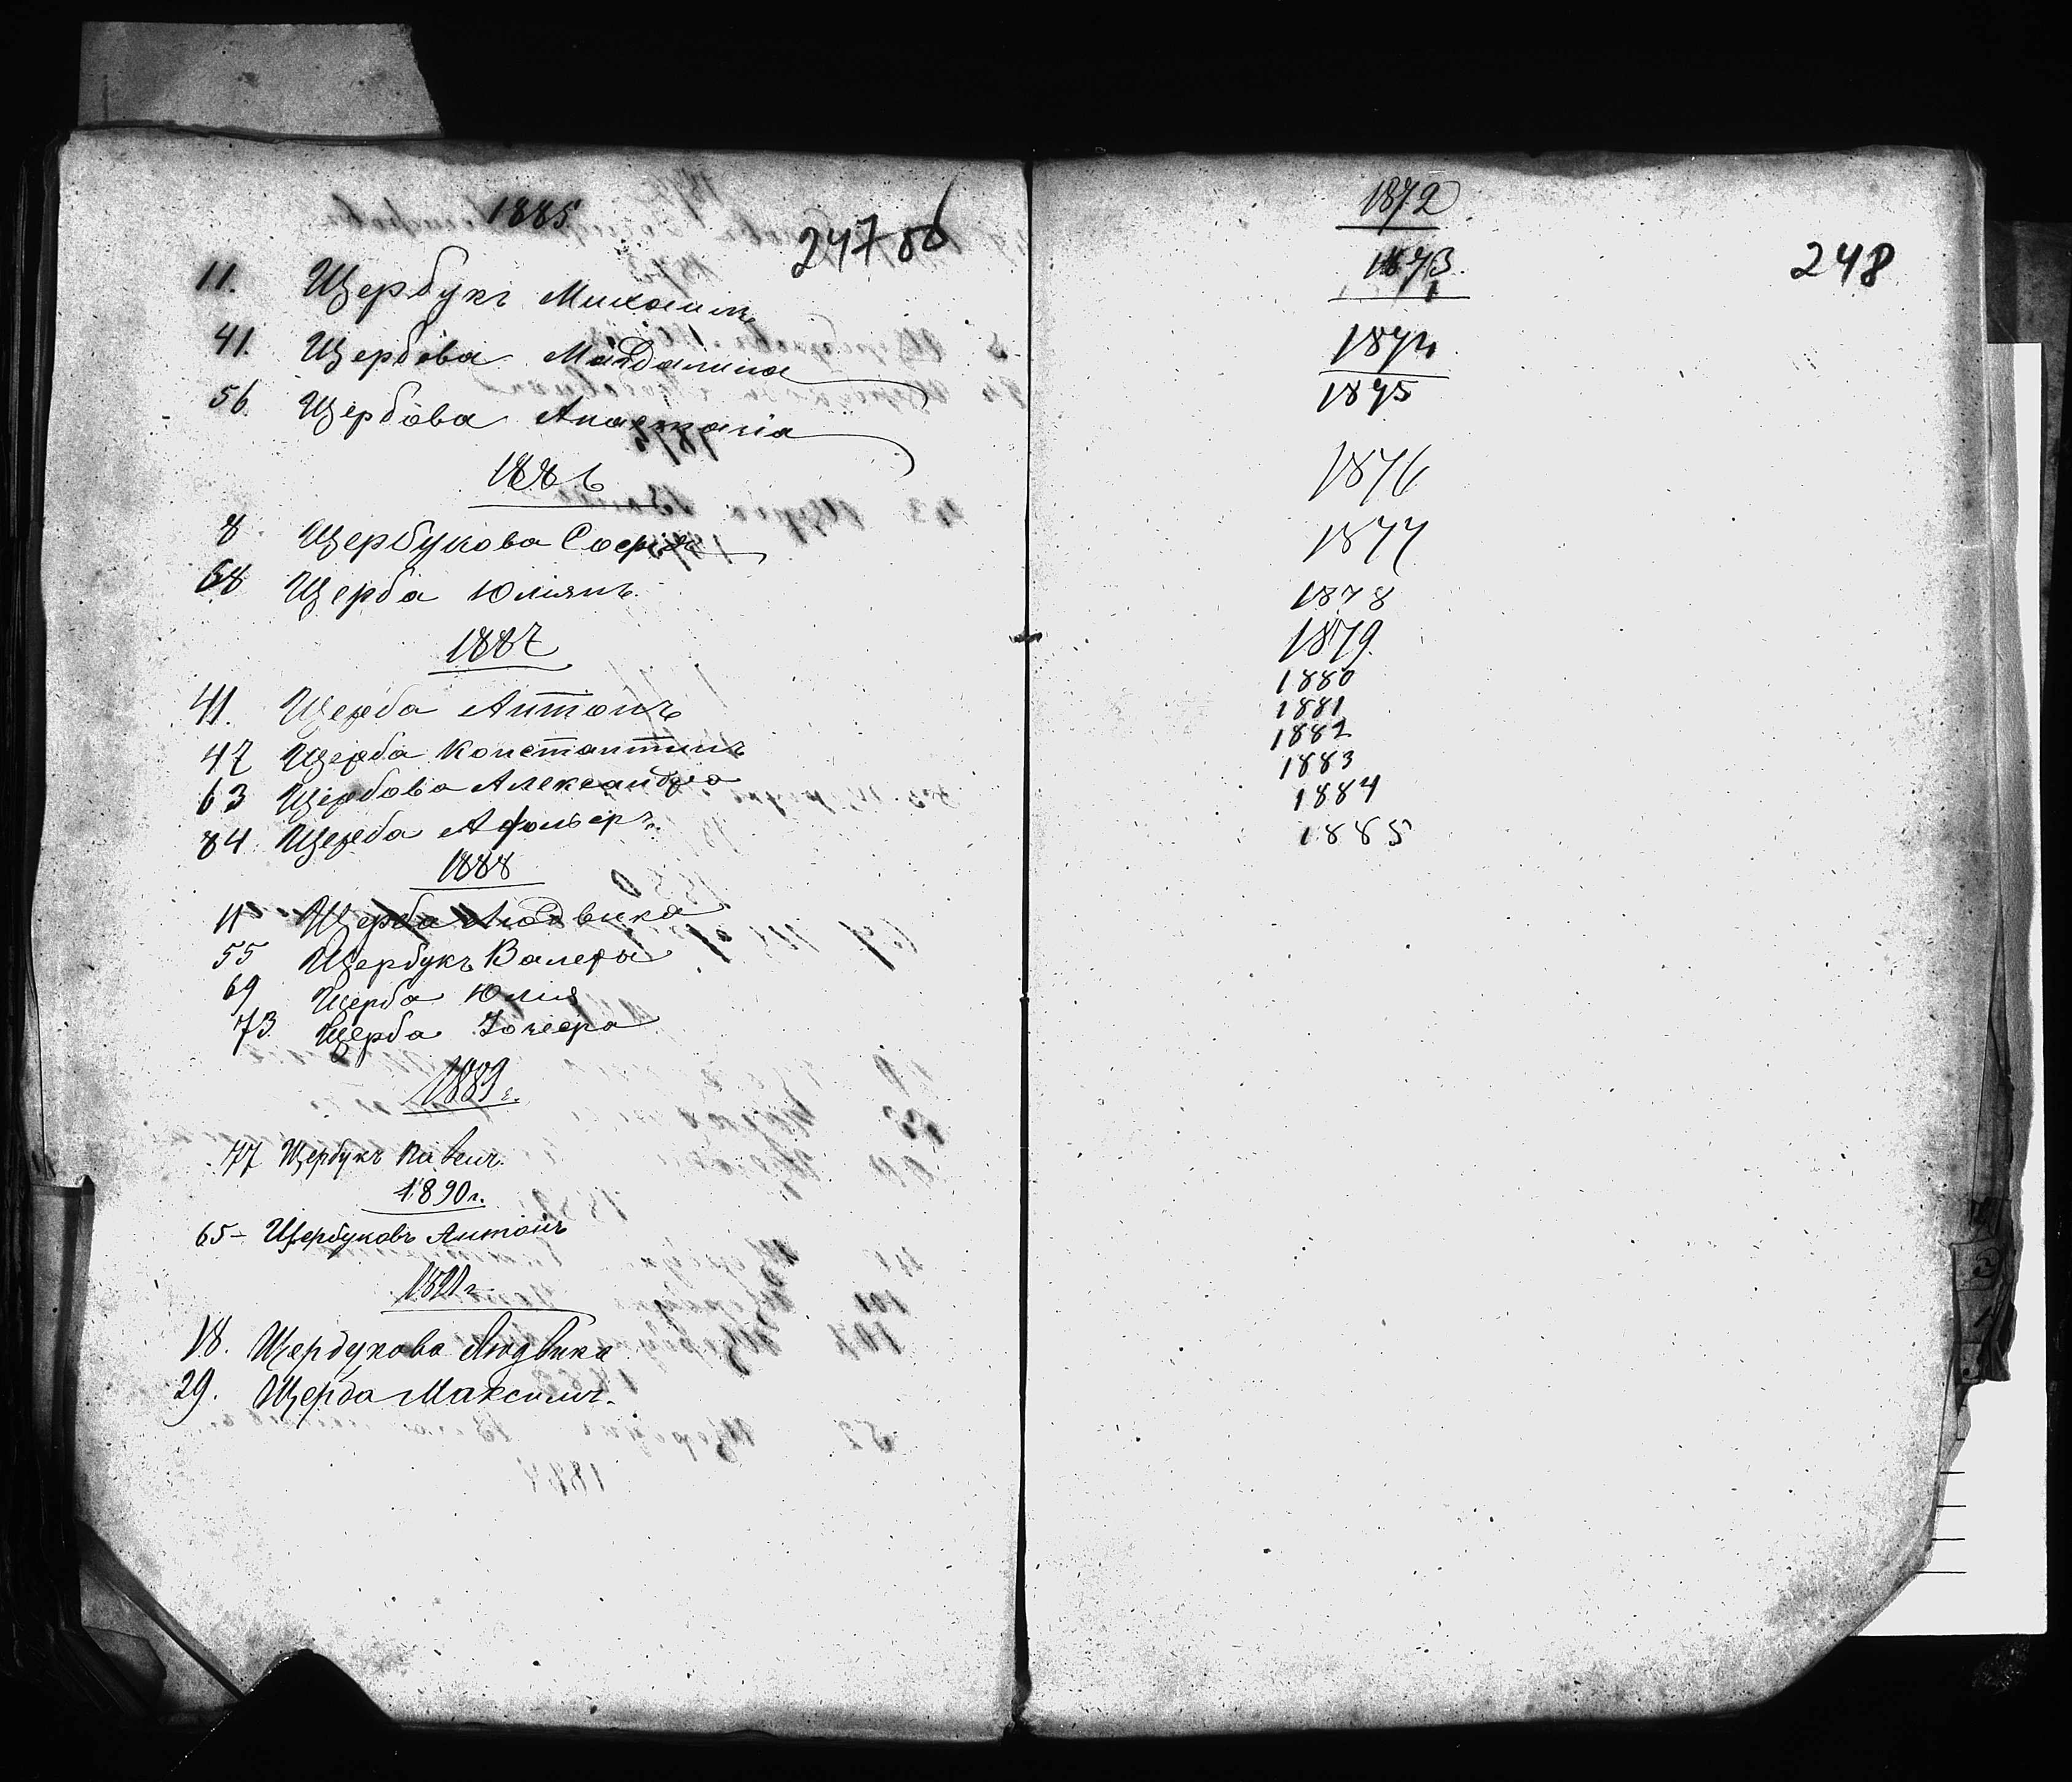 1885
247 об
11. Щербукъ Михаилъ
41. Щербова Магдалина
56. Щербова Анастасія
1886
8 Щербукова Софія
68 Щерба Юліянъ.
1887
41. Щерба Антонъ
47 Щерба Константинъ
63 Щербова Александра
84. Щерба
1888
11 Щерба Людвика
55 Щербукъ Валеры
69 Щерба Юлія
73. Щерба
1889 г.
77 Щербукъ Павелъ.
1890 г.
65 - Щербуковъ Антонъ
1891 г.
18. Щербукова Людвика
29. Щерба Максимъ.
1872
248
1873
1874
1875
1876
1877
1878
1879.
1880
1881
1882
1883
1884
1885